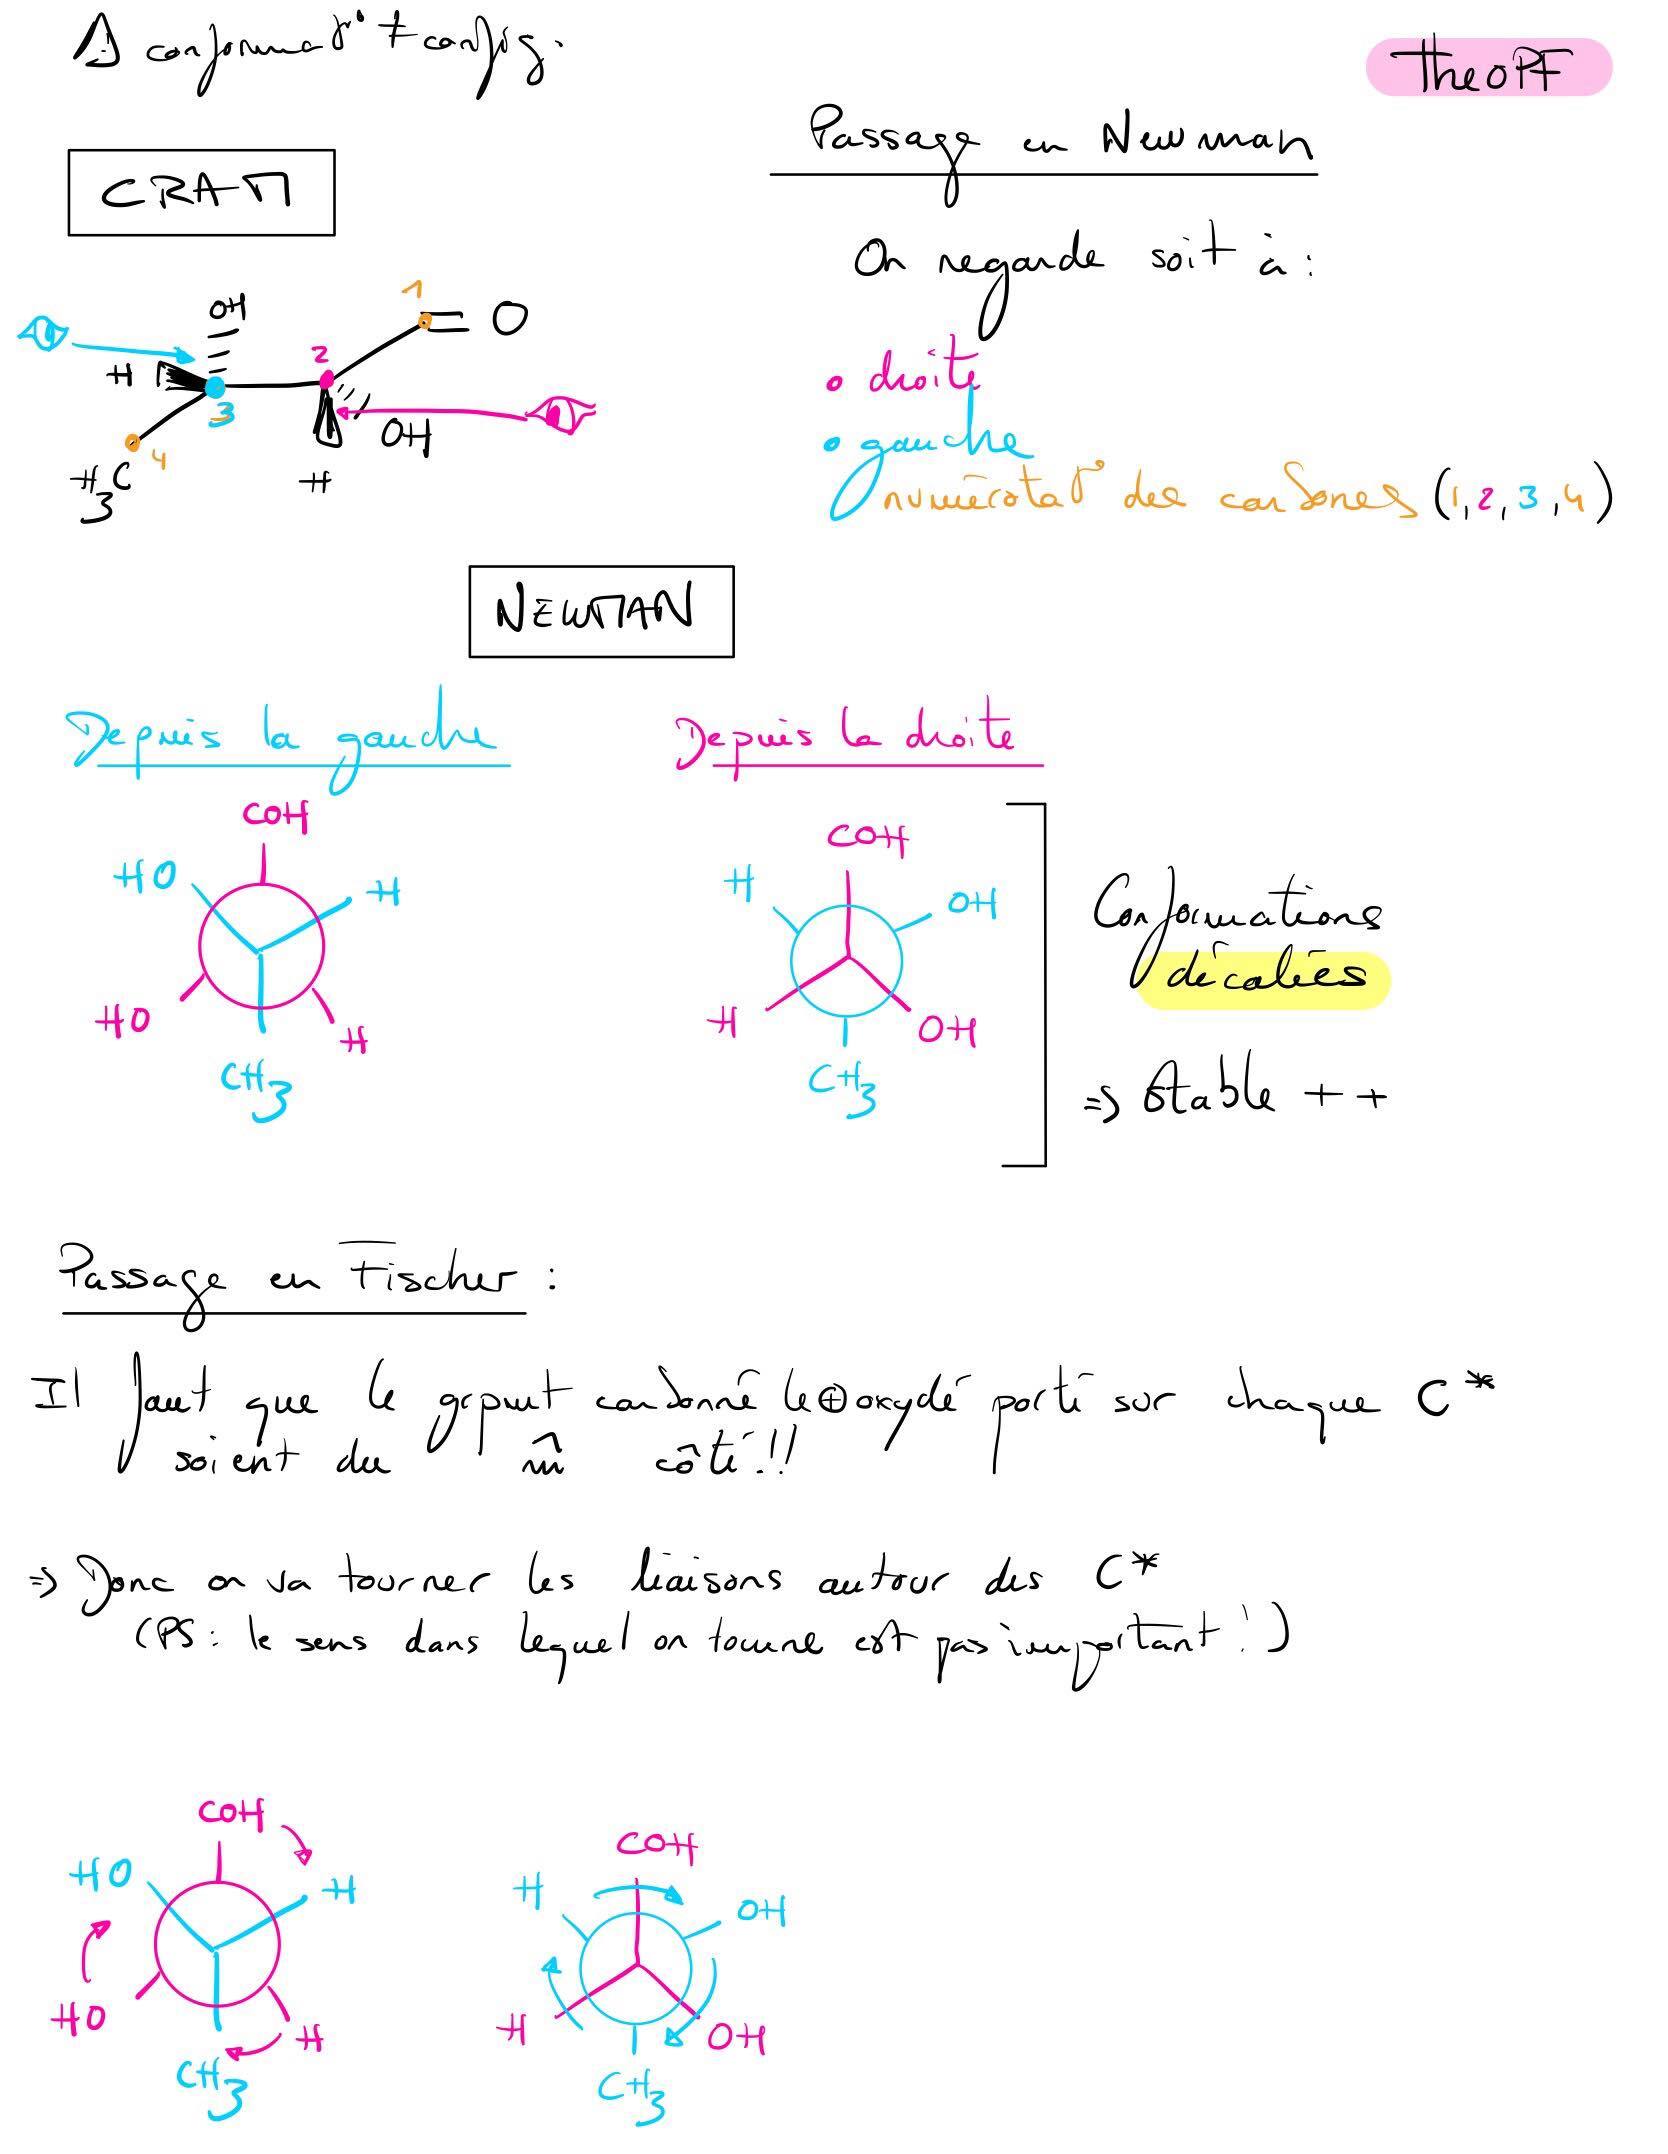 ⚠ conformat° ≠ config.
TheoPF
Passage en Newman
CRAM
On regarde soit à :
• droite
• gauche
numérotat° des carbones (1, 2, 3, 4)
OH
1
O
H
2
3
OH
4
H3C
H
NEWMAN
Depuis la gauche
Depuis la droite
COH
HO
H
HO
H
CH3
COH
H
OH
H
OH
CH3
Conformations
décalées
=> Stable ++
Passage en Fischer :
Il faut que le grpmt carbonné le ⊕ oxydé porté sur chaque C*
soient du m̂ côté !!
=> Donc on va tourner les liaisons autour des C*
(PS : le sens dans lequel on tourne est pas important !)
COH
HO
H
HO
H
CH3
COH
H
OH
H
OH
CH3